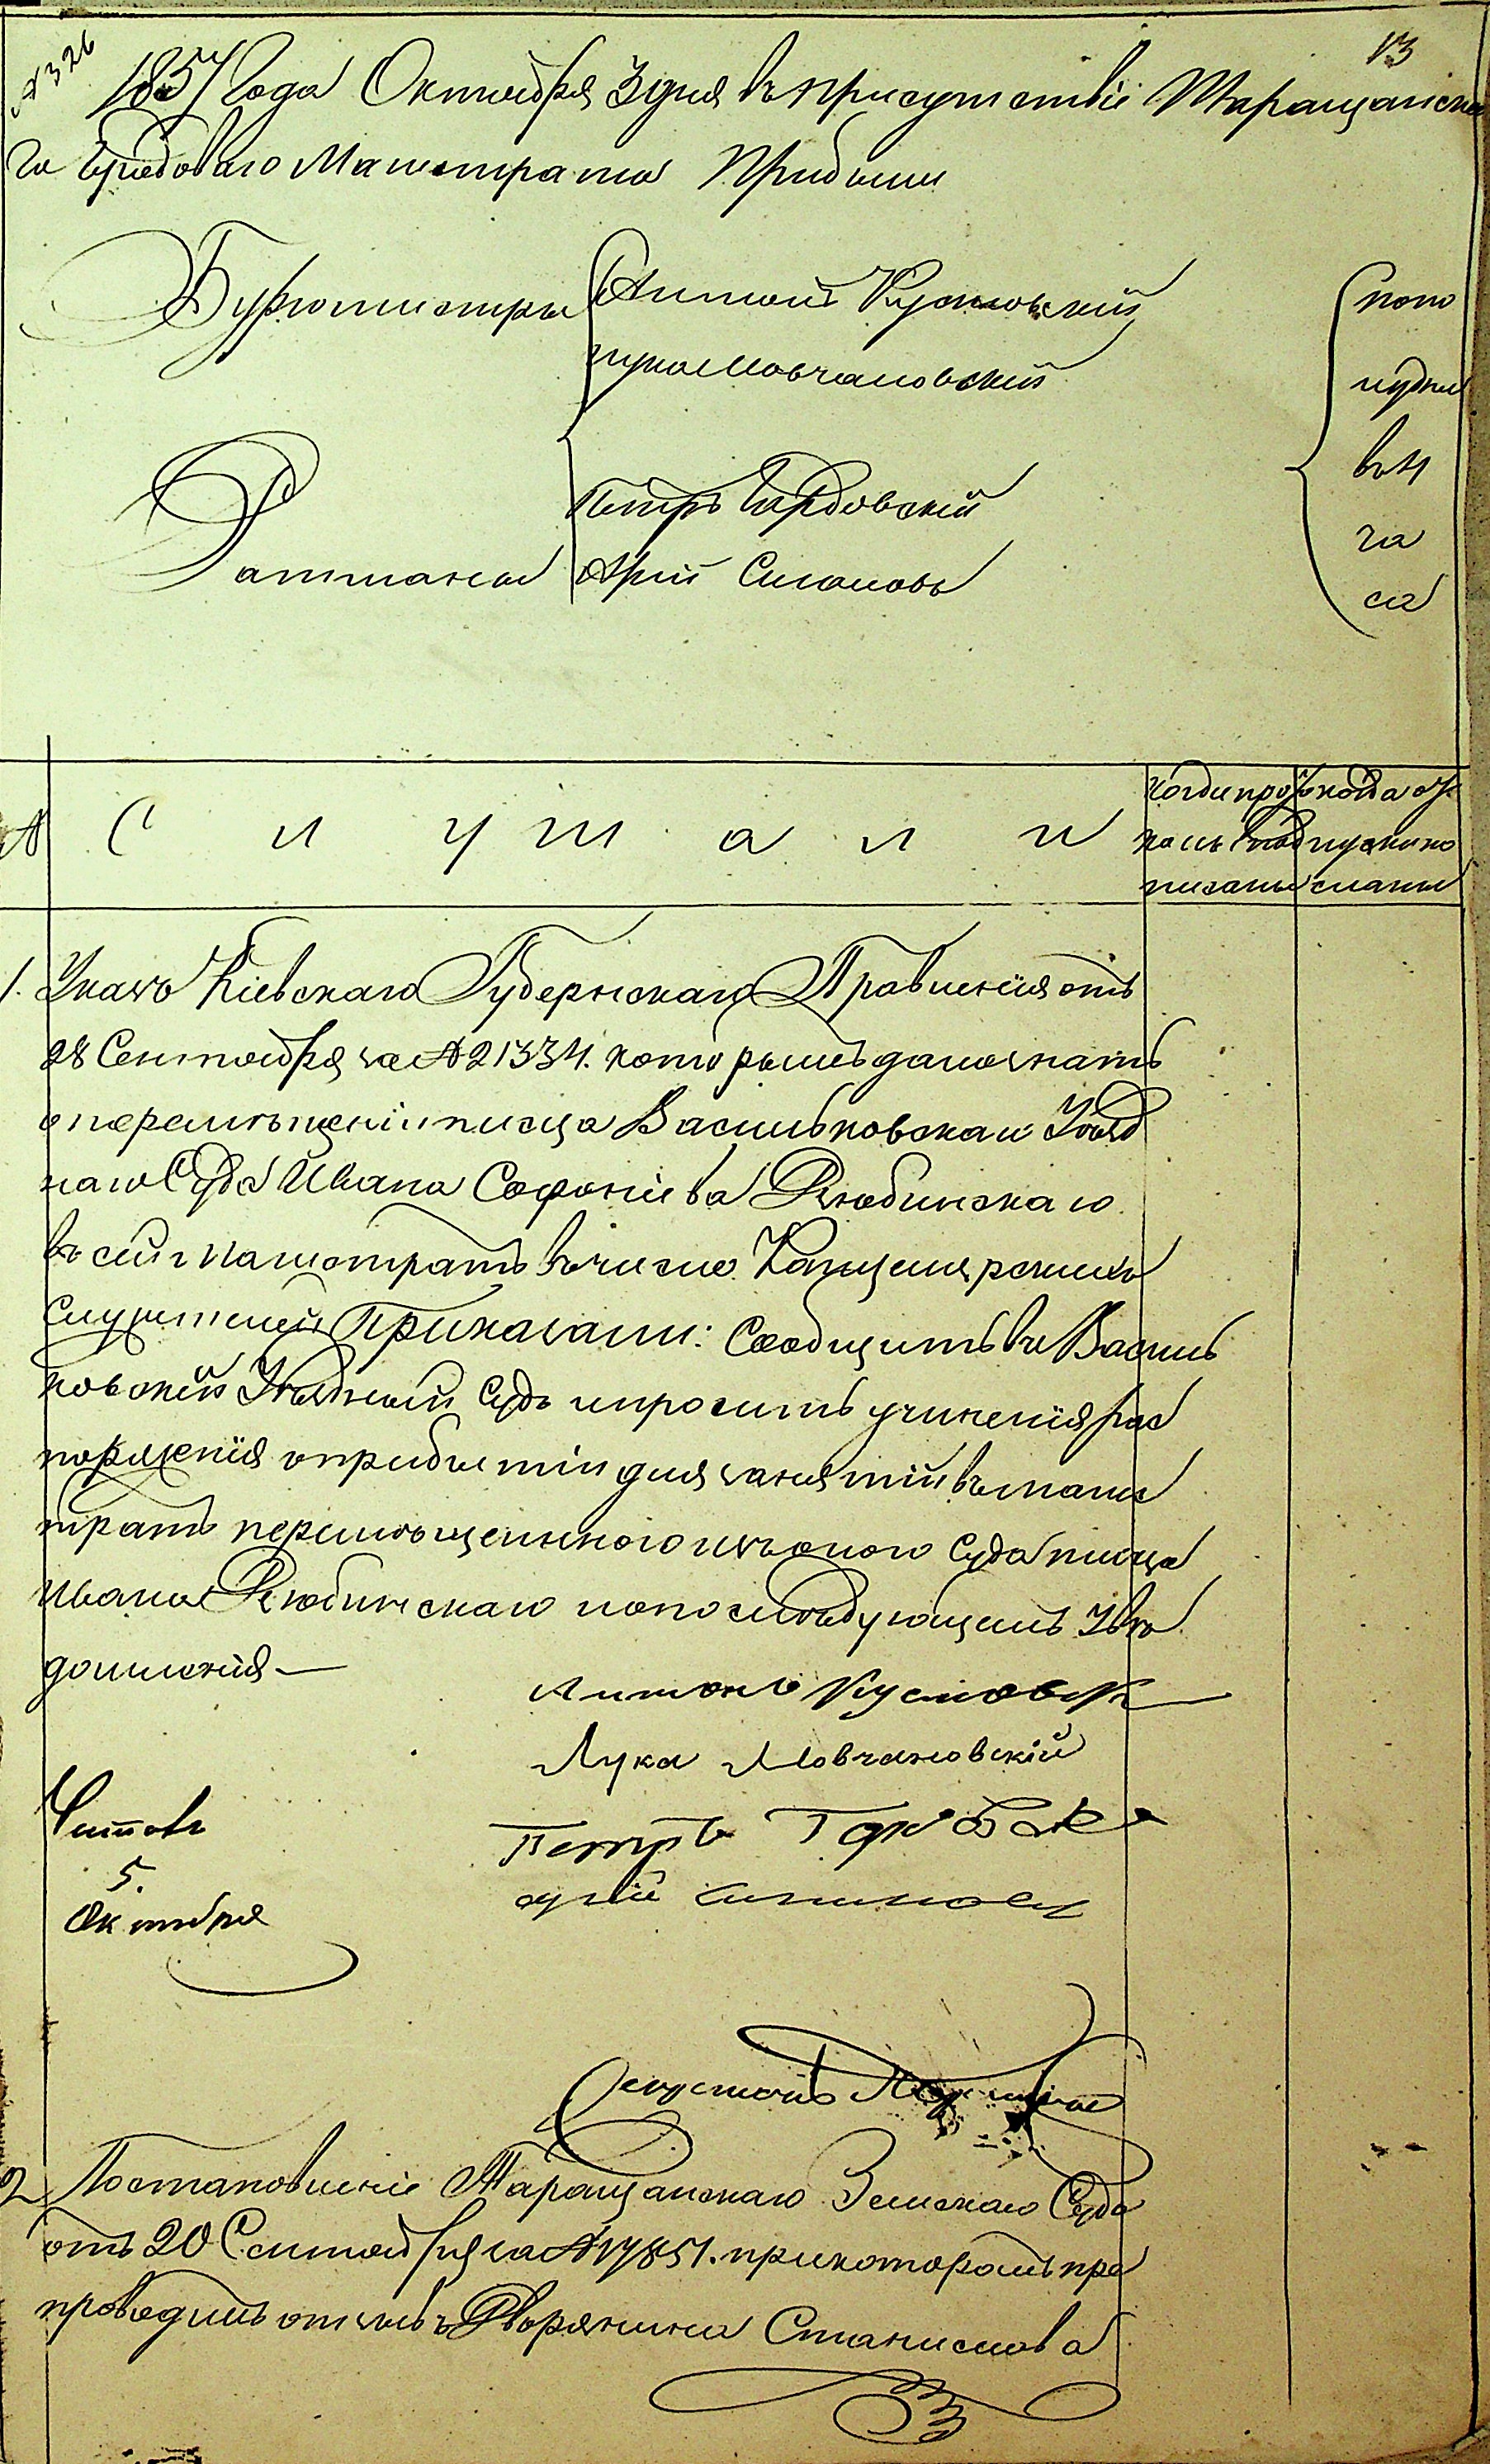 № 326
13
1857 Года Октября 3 дня въ присутствіе Таращанска
го Градоваго Магистрата Прибыли
Бургомистры
Антонъ Кусновскій
Лука Мовчановскій
Ратманы
Петръ Гарбовскій
Юрій Симоновъ
по по
лудни
въ 4
ча
са
№
С л у ш а л и
когда про
колъ под
писаны
когда от
пуски по
сланы
1. Указъ Кіевскаго Губернскаго Правленія отъ
28 Сентября за № 21334. которымъ дано знать
о перемѣщеніи писца Васильковскаго Уѣзд
наго Суда Ивана Софоніева Рклюбинскаго
въ сей Магистратъ въ число Канцелярскихъ
служителей Приказали: Сообщить въ Василь
ковскій Уѣздный Судъ и просить учиненія рас
поряженія о прибытіи для занятій въ магис
тратъ перемѣщеннаго изъ оного Суда писца
Ивана Рклюбинскаго и о послѣдующемъ Увѣ
домленія —
Антонъ Кусновск
Лука Мовчановскій
Петръ Гарбовск
Юрій Симоновъ
Читалъ
5.
Октября
Секретарь
2 Постановленіе Таращанскаго Земскаго Суда
отъ 20 Сентября за № 17851. при которомъ пре
проводилъ отзывъ Дворянина Станислава